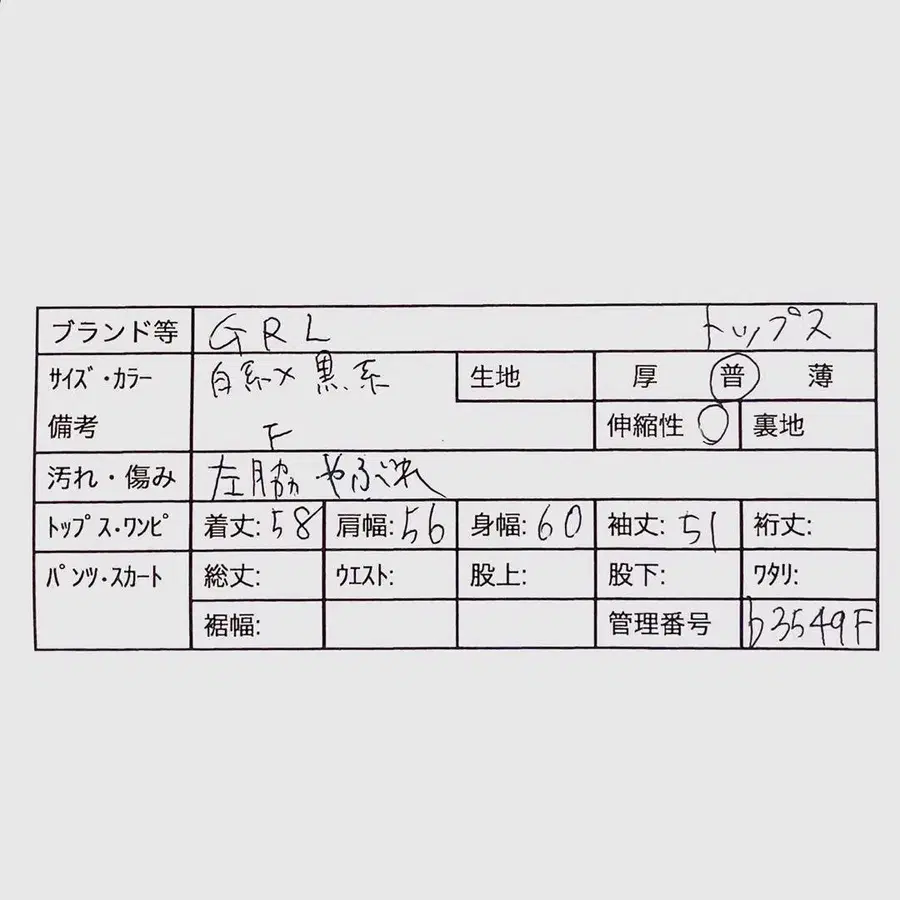 ブランド等 GRL トップス
サイズ・カラー 白系×黒系 生地 厚 普 薄
備考 F 伸縮性 ○ 裏地
汚れ・傷み 左脇 やぶれ
トップス・ワンピ 着丈:58 肩幅:56 身幅:60 袖丈:51 裄丈:
パンツ・スカート 総丈: ウエスト: 股上: 股下: ワタリ:
裾幅: 管理番号 b3549F